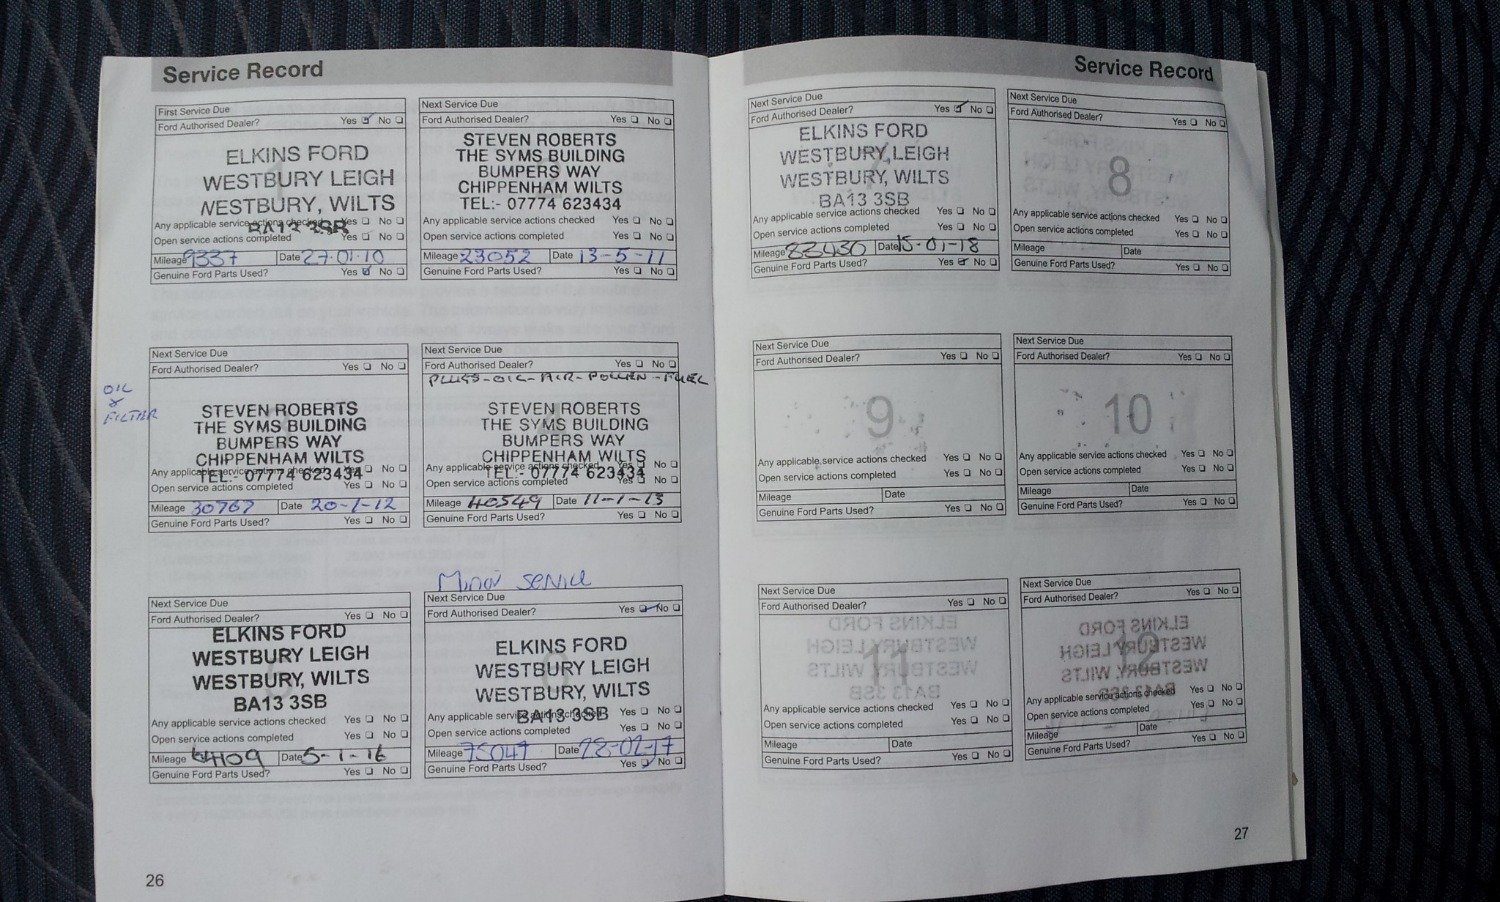 Service Record
First Service Due
Ford Authorised Dealer? Yes No
ELKINS FORD
WESTBURY LEIGH
WESTBURY, WILTS
BA13 3SB
Any applicable service actions checked Yes No
Open service actions completed Yes No
Mileage 9337 Date 27-01-10
Genuine Ford Parts Used? Yes No
Next Service Due
Ford Authorised Dealer? Yes No
STEVEN ROBERTS
THE SYMS BUILDING
BUMPERS WAY
CHIPPENHAM WILTS
TEL:- 07774 623434
Any applicable service actions checked Yes No
Open service actions completed Yes No
Mileage 23052 Date 13-5-11
Genuine Ford Parts Used? Yes No
OIL
&
FILTER
Next Service Due
Ford Authorised Dealer? Yes No
STEVEN ROBERTS
THE SYMS BUILDING
BUMPERS WAY
CHIPPENHAM WILTS
Any applicable service actions checked Yes No
TEL:- 07774 623434
Open service actions completed Yes No
Mileage 30767 Date 20-1-12
Genuine Ford Parts Used? Yes No
Next Service Due
Ford Authorised Dealer? Yes No
PLUGS-OIL-AIR-POLLEN-FUEL
STEVEN ROBERTS
THE SYMS BUILDING
BUMPERS WAY
CHIPPENHAM WILTS
Any applicable service actions checked Yes No
TEL:- 07774 623434
Open service actions completed Yes No
Mileage 40549 Date 11-1-13
Genuine Ford Parts Used? Yes No
Next Service Due
Ford Authorised Dealer? Yes No
ELKINS FORD
WESTBURY LEIGH
WESTBURY, WILTS
BA13 3SB
Any applicable service actions checked Yes No
Open service actions completed Yes No
Mileage 64109 Date 5-1-16
Genuine Ford Parts Used? Yes No
Minor Service
Next Service Due
Ford Authorised Dealer? Yes No
ELKINS FORD
WESTBURY LEIGH
WESTBURY, WILTS
BA13 3SB
Any applicable service actions checked Yes No
Open service actions completed Yes No
Mileage 75047 Date 28-02-17
Genuine Ford Parts Used? Yes No
26
Service Record
Next Service Due
Ford Authorised Dealer? Yes No
ELKINS FORD
WESTBURY LEIGH
WESTBURY, WILTS
BA13 3SB
Any applicable service actions checked Yes No
Open service actions completed Yes No
Mileage 83430 Date 15-01-18
Genuine Ford Parts Used? Yes No
Next Service Due
Ford Authorised Dealer? Yes No
8
Any applicable service actions checked Yes No
Open service actions completed Yes No
Mileage Date
Genuine Ford Parts Used? Yes No
Next Service Due
Ford Authorised Dealer? Yes No
9
Any applicable service actions checked Yes No
Open service actions completed Yes No
Mileage Date
Genuine Ford Parts Used? Yes No
Next Service Due
Ford Authorised Dealer? Yes No
10
Any applicable service actions checked Yes No
Open service actions completed Yes No
Mileage Date
Genuine Ford Parts Used? Yes No
Next Service Due
Ford Authorised Dealer? Yes No
11
Any applicable service actions checked Yes No
Open service actions completed Yes No
Mileage Date
Genuine Ford Parts Used? Yes No
Next Service Due
Ford Authorised Dealer? Yes No
12
Any applicable service actions checked Yes No
Open service actions completed Yes No
Mileage Date
Genuine Ford Parts Used? Yes No
27